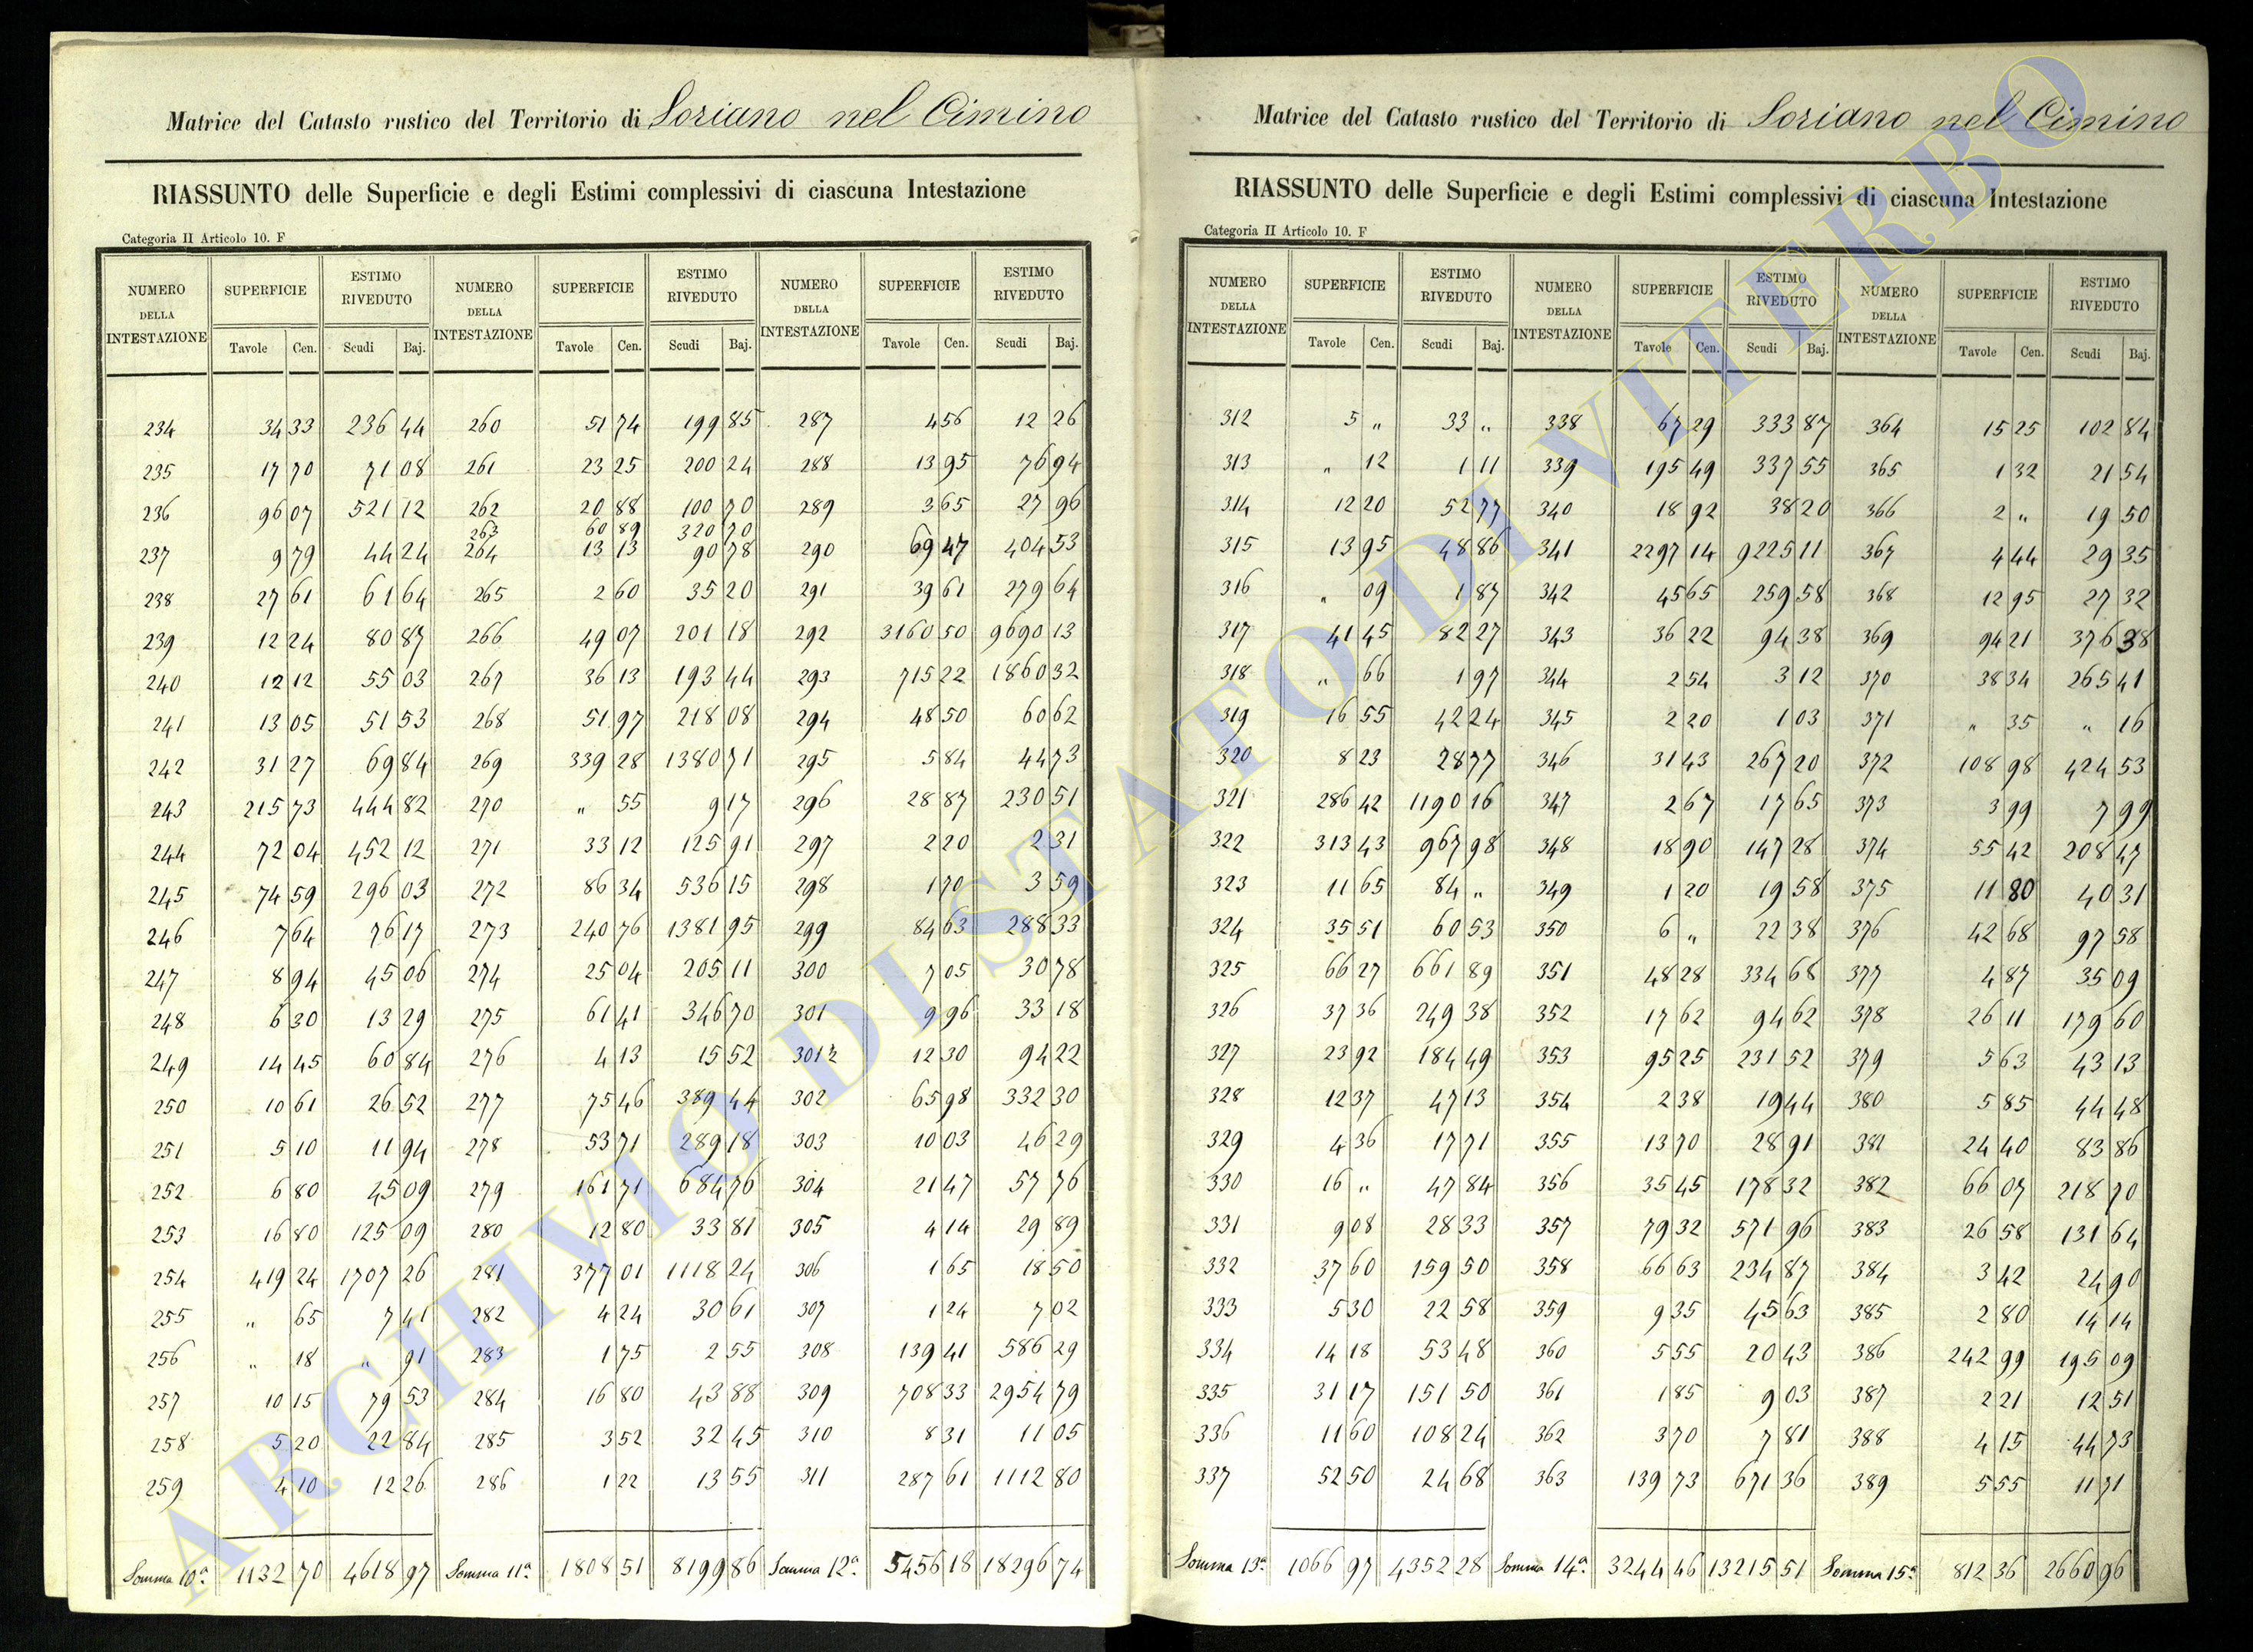 Matrice del Catasto rustico del Territorio di Soriano nel Cimino
RIASSUNTO delle Superficie e degli Estimi complessivi di ciascuna Intestazione
Categoria II Articolo 10. F
NUMERO DELLA INTESTAZIONE SUPERFICIE ESTIMO RIVEDUTO NUMERO DELLA INTESTAZIONE SUPERFICIE ESTIMO RIVEDUTO NUMERO DELLA INTESTAZIONE SUPERFICIE ESTIMO RIVEDUTO
Tavole Cen. Scudi Baj. Tavole Cen. Scudi Baj. Tavole Cen. Scudi Baj.
234 34 33 236 44 260 51 74 199 85 287 4 56 12 26
235 17 70 71 08 261 23 25 200 24 288 13 95 76 94
236 96 07 521 12 262 20 88 100 70 289 3 65 27 96
263 60 89 320 70
237 9 79 44 24 264 13 13 90 78 290 69 47 404 53
238 27 61 61 64 265 2 60 35 20 291 39 61 279 64
239 12 24 80 87 266 49 07 201 18 292 3160 50 9690 13
240 12 12 55 03 267 36 13 193 44 293 715 22 1860 32
241 13 05 51 53 268 51 97 218 08 294 48 50 60 62
242 31 27 69 84 269 339 28 1380 71 295 5 84 44 73
243 215 73 444 82 270 " 55 9 17 296 28 87 230 51
244 72 04 452 12 271 33 12 125 91 297 2 20 2 31
245 74 59 296 03 272 86 34 536 15 298 1 70 3 59
246 7 64 76 17 273 240 76 1381 95 299 84 63 288 33
247 8 94 45 06 274 25 04 205 11 300 7 05 30 78
248 6 30 13 29 275 61 41 346 70 301 9 96 33 18
249 14 45 60 84 276 4 13 15 52 301½ 12 30 94 22
250 10 61 26 52 277 75 46 389 44 302 65 98 332 30
251 5 10 11 94 278 53 71 289 18 303 10 03 46 29
252 6 80 45 09 279 161 71 684 76 304 21 47 57 76
253 16 80 125 09 280 12 80 33 81 305 4 14 29 89
254 419 24 1707 26 281 377 01 1118 24 306 1 65 18 50
255 " 65 7 41 282 4 24 30 61 307 1 24 7 02
256 " 18 " 91 283 1 75 2 55 308 139 41 586 29
257 10 15 79 53 284 16 80 43 88 309 708 33 2954 79
258 5 20 22 84 285 3 52 32 45 310 8 31 11 05
259 4 10 12 26 286 1 22 13 55 311 287 61 1112 80
Somma 10ª 1132 70 4618 97 Somma 11ª 1808 51 8199 86 Somma 12ª 5456 18 18296 74
Matrice del Catasto rustico del Territorio di Soriano nel Cimino
RIASSUNTO delle Superficie e degli Estimi complessivi di ciascuna Intestazione
Categoria II Articolo 10. F
NUMERO DELLA INTESTAZIONE SUPERFICIE ESTIMO RIVEDUTO NUMERO DELLA INTESTAZIONE SUPERFICIE ESTIMO RIVEDUTO NUMERO DELLA INTESTAZIONE SUPERFICIE ESTIMO RIVEDUTO
Tavole Cen. Scudi Baj. Tavole Cen. Scudi Baj. Tavole Cen. Scudi Baj.
312 5 " 33 " 338 67 29 333 87 364 15 25 102 84
313 " 12 1 11 339 195 49 337 55 365 1 32 21 54
314 12 20 52 77 340 18 92 38 20 366 2 " 19 50
315 13 95 48 86 341 2297 14 9225 11 367 4 44 29 35
316 " 09 1 87 342 45 65 259 58 368 12 95 27 32
317 41 45 82 27 343 36 22 94 38 369 94 21 376 38
318 " 66 1 97 344 2 54 3 12 370 38 34 265 41
319 16 55 42 24 345 2 20 1 03 371 " 35 " 16
320 8 23 28 77 346 31 43 267 20 372 108 98 424 53
321 286 42 1190 16 347 2 67 17 65 373 3 99 7 99
322 313 43 967 98 348 18 90 147 28 374 55 42 208 47
323 11 65 84 " 349 1 20 19 58 375 11 80 40 31
324 35 51 60 53 350 6 " 22 38 376 42 68 97 58
325 66 27 661 89 351 48 28 334 68 377 4 87 35 09
326 37 36 249 38 352 17 62 94 62 378 26 11 179 60
327 23 92 184 49 353 95 25 231 52 379 5 63 43 13
328 12 37 47 13 354 2 38 19 44 380 5 85 44 48
329 4 36 17 71 355 13 70 28 91 381 24 40 83 86
330 16 " 47 84 356 35 45 178 32 382 66 07 218 70
331 9 08 28 33 357 79 32 571 96 383 26 58 131 64
332 37 60 159 50 358 66 63 234 87 384 3 42 24 90
333 5 30 22 58 359 9 35 45 63 385 2 80 14 14
334 14 18 53 48 360 5 55 20 43 386 242 99 195 09
335 31 17 151 50 361 1 85 9 03 387 2 21 12 51
336 11 60 108 24 362 3 70 7 81 388 4 15 44 73
337 52 50 24 68 363 139 73 671 36 389 5 55 11 71
Somma 13ª 1066 97 4352 28 Somma 14ª 3244 46 13215 51 Somma 15ª 812 36 2660 96
ARCHIVIO DI STATO DI VITERBO